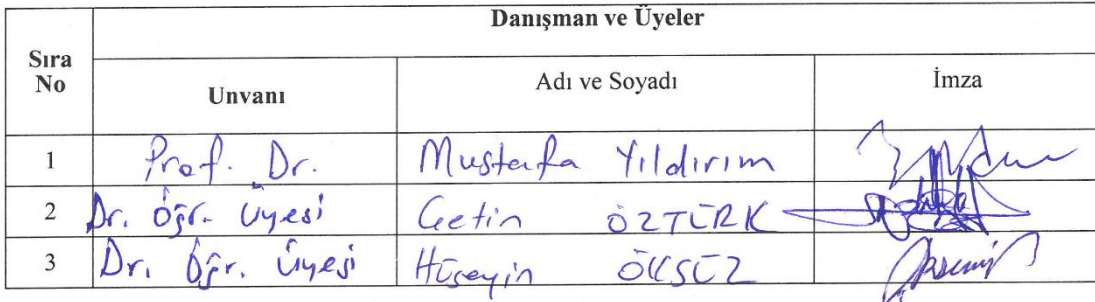 Danışman ve Üyeler
Sıra No Unvanı Adı ve Soyadı İmza
1 Prof. Dr. Mustafa Yıldırım
2 Dr. Öğr. Üyesi Çetin ÖZTÜRK
3 Dr. Öğr. Üyesi Hüseyin ÖKSÜZ